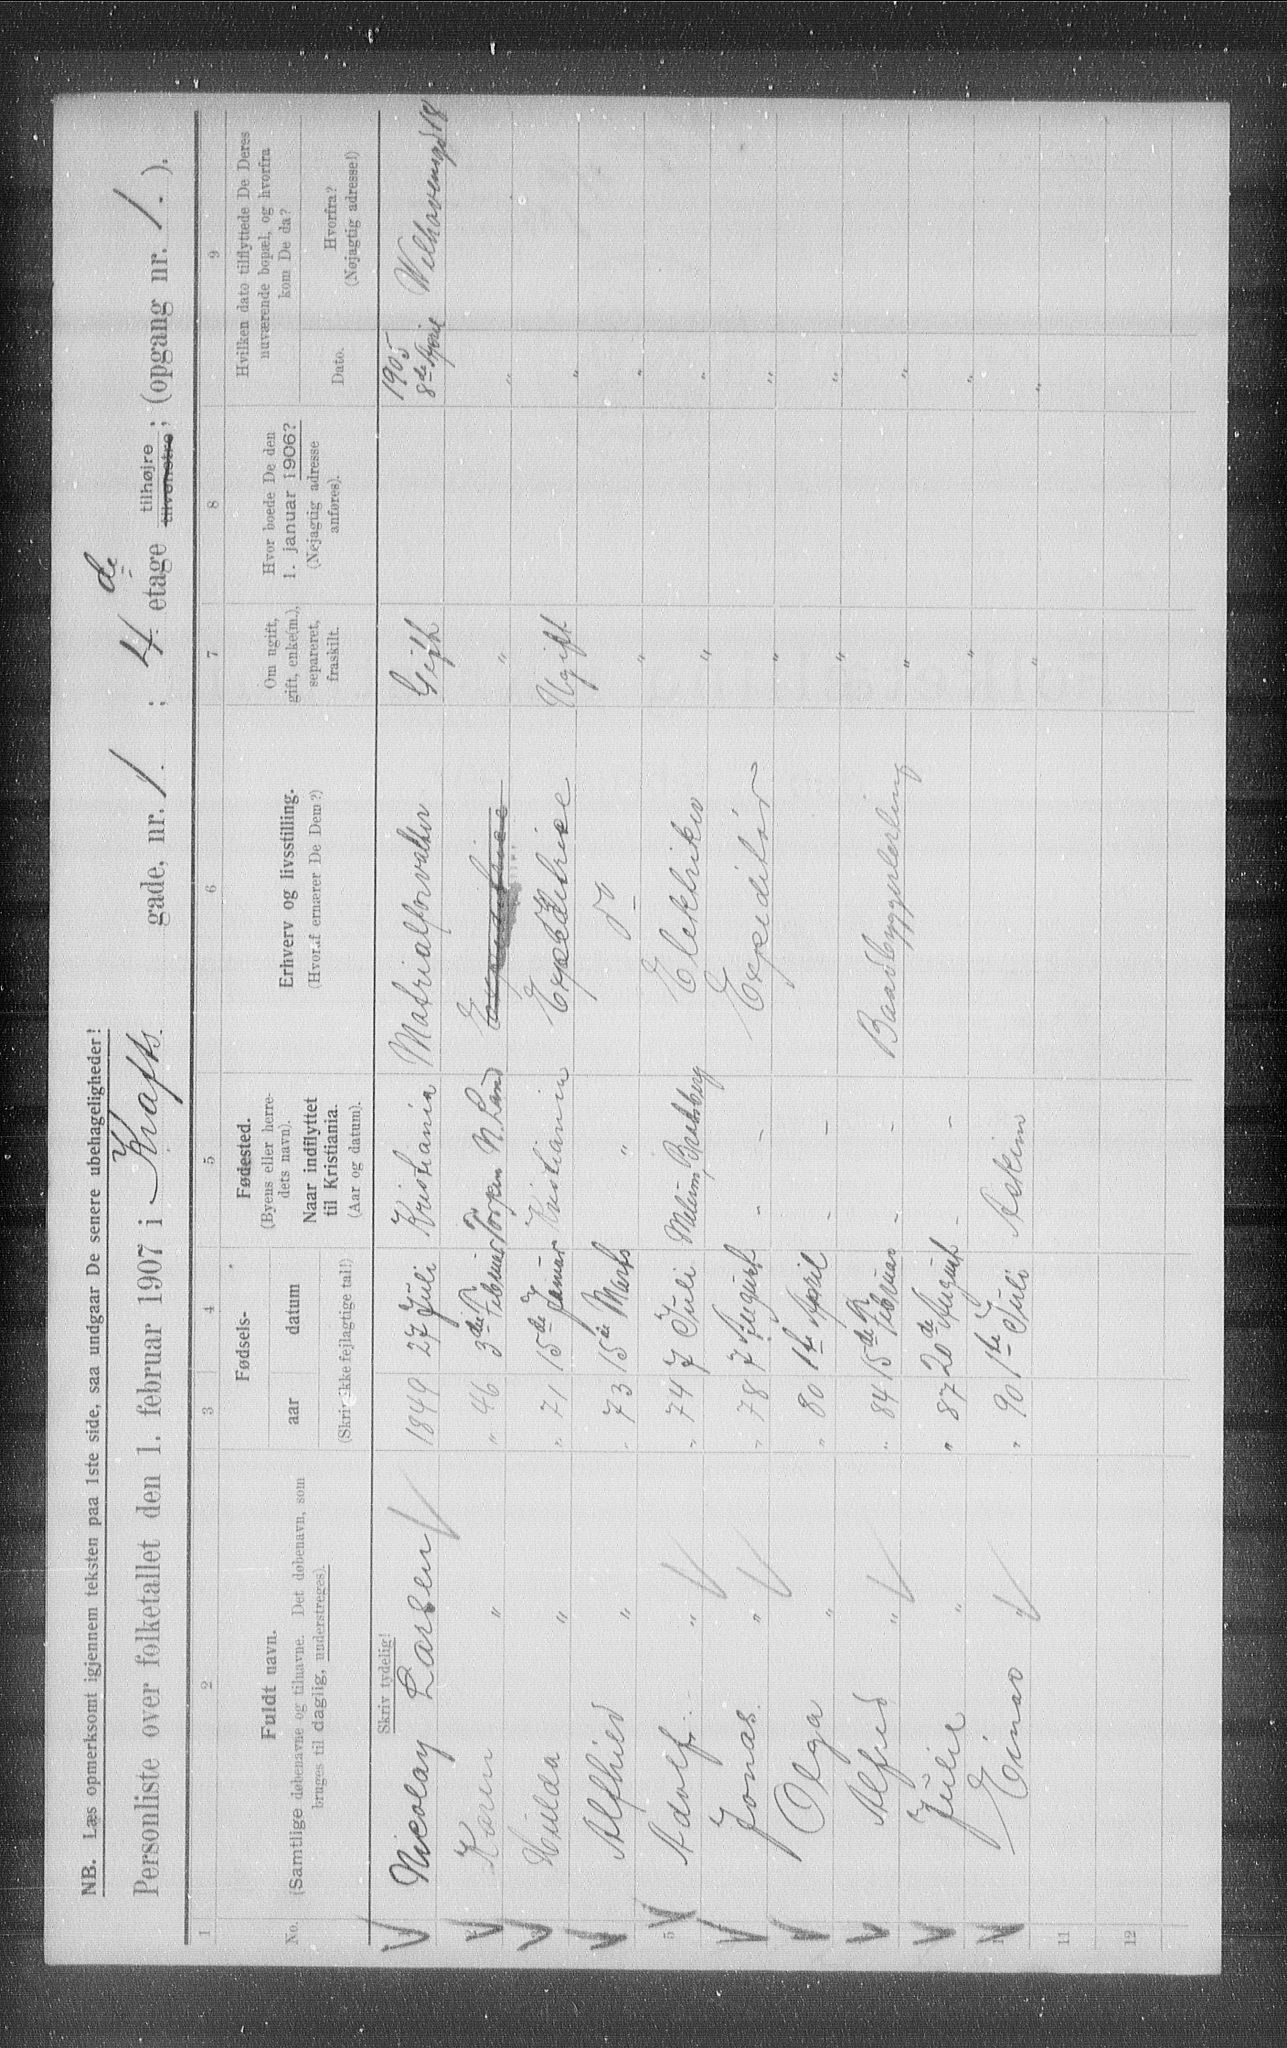 NB. Læs opmerksomt igjennem teksten paa 1ste side, saa undgaar De senere ubehageligheder!
Personliste over folketallet den 1. februar 1907 i Krafts gade, nr. 1. ; 4de etage tilhøjre tilvenstre; (opgang nr. 1. ).
1 2 3 4 5 6 7 8 9
No. Fuldt navn. (Samtlige døbenavne og tilnavne. Det døbenavn, som bruges til daglig, understreges).
Fødsels- aar datum (Skriv ikke fejlagtige tal!)
Fødested. (Byens eller herredets navn). Naar indflyttet til Kristiania. (Aar og datum).
Erhverv og livsstilling. (Hvoraf ernærer De Dem?)
Om ugift, gift, enke(m.), separeret, fraskilt.
Hvor boede De den 1. januar 1906? (Nøjagtig adresse anføres).
Hvilken dato tilflyttede De Deres nuværende bopæl, og hvorfra kom De da?
Dato. Hvorfra? (Nøjagtig adresse!)
Skriv tydelig!
Nicolay Larsen 1849 27 Juli Kristiania Matrialforvalter Gift 1905 8de April Welhavensgd 18
Karen " " 46 3die Februar Torpen N. Land Expeditrice " "
Hulda " " 71 15de Januar Kristiania Expeditrice Ugift "
Alfhild " " 73 15de Marts " do " "
5 Adolf " " 74 7 Juli Bratsberg Elektriker " "
Jonas " " 78 7 August - - Expeditør " "
Olga " " 80 1ste April - - " "
Alfred " " 84 15de Februar - - Baadbyggerlerling " "
Julie " " 87 20de August - - " "
Einar " " 90 1ste Juli Askim " "
11
12